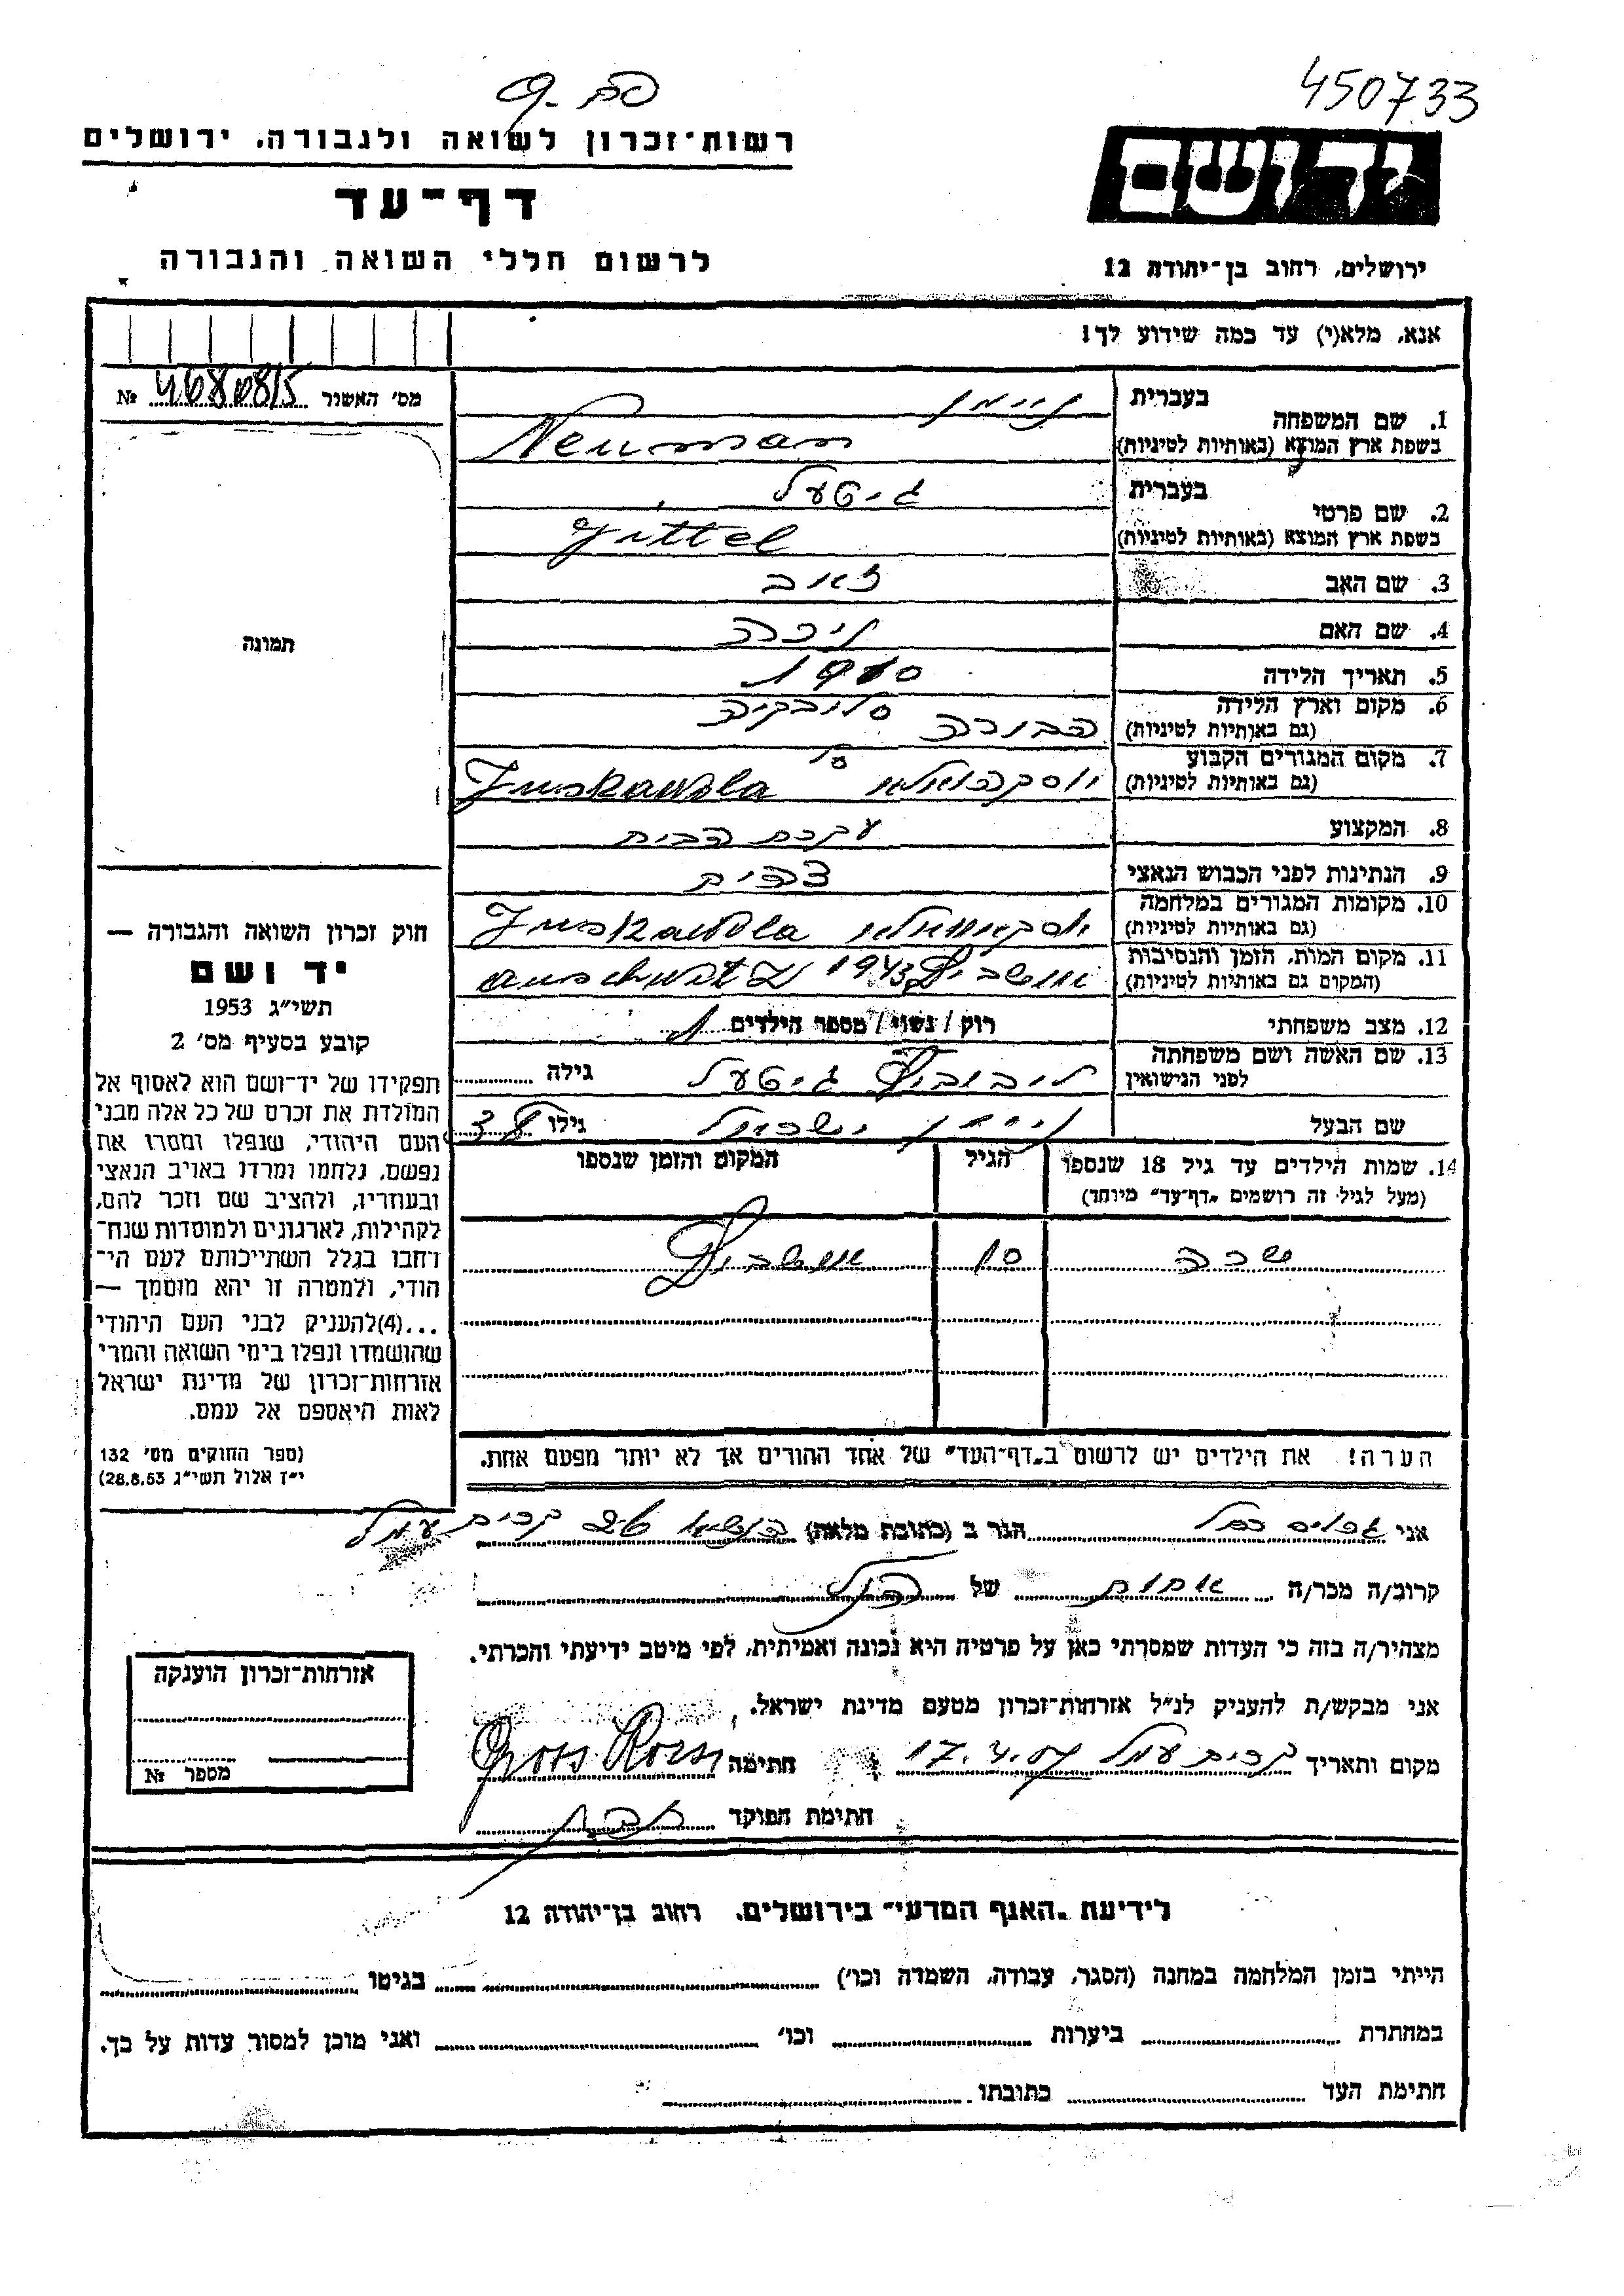 450733
רשות-זכרון לשואה ולגבורה, ירושלים
דף-עד
לרשום חללי השואה והגבורה
יד ושם
ירושלים, רחוב בן-יהודה 12
אנא, מלא(י) עד כמה שידוע לך!
מס' האשור №
בעברית
1. שם המשפחה
ניימן
בשפת ארץ המוצא (באותיות לטיניות)
Neuman
בעברית
2. שם פרטי
גיטעל
בשפת ארץ המוצא (באותיות לטיניות)
Jittel
3. שם האב זאב
4. שם האם
5. תאריך הלידה 1910
6. מקום וארץ הלידה
(גם באותיות לטיניות)
סלובקיה
7. מקום המגורים הקבוע
(גם באותיות לטיניות)
Juskawola
8. המקצוע עקרת הבית
9. הנתינות לפני הכבוש הנאצי צכית
10. מקומות המגורים במלחמה
(גם באותיות לטיניות)
Juskawola
11. מקום המות, הזמן והנסיבות
(המקום גם באותיות לטיניות)
אושביץ 1943 auschwitz
12. מצב משפחתי רוק / נשוי / מספר הילדים 1
13. שם האשה ושם משפחתה
לפני הנישואין
ליבוביץ גיטעל גילה
שם הבעל ניימן גילו 38
14. שמות הילדים עד גיל 18 שנספו הגיל המקום והזמן שנספו
(מעל לגיל זה רושמים "דף-עד" מיוחד)
שרה 10 אושביץ
הערה! את הילדים יש לרשום ב"דף-העד" של אחד ההורים אך לא יותר מפעם אחת.
תמונה
חוק זכרון השואה והגבורה —
יד ושם
תשי"ג 1953
קובע בסעיף מס' 2
תפקידו של יד-ושם הוא לאסוף אל
המולדת את זכרם של כל אלה מבני
העם היהודי, שנפלו ומסרו את
נפשם, נלחמו ומרדו באויב הנאצי
ובעוזריו, ולהציב שם וזכר להם,
לקהילות, לארגונים ולמוסדות שנח-
רחבו בגלל השתייכותם לעם הי-
הודי, ולמטרה זו יהא מוסמך —
...(4)להעניק לבני העם היהודי
שהושמדו ונפלו בימי השואה והמרי
אזרחות-זכרון של מדינת ישראל
לאות היאספם אל עמם.
(ספר החוקים מס' 132
י"ז אלול תשי"ג 28.8.53)
אני הגר ב (כתובת מלאה)
קרוב/ה מכר/ה אחות של הנ"ל
מצהיר/ה בזה כי העדות שמסרתי כאן על פרטיה היא נכונה ואמיתית, לפי מיטב ידיעתי והכרתי.
אני מבקש/ת להעניק לנ"ל אזרחות-זכרון מטעם מדינת ישראל.
מקום ותאריך קרית עמל 17.4.57 חתימה
חתימת הפוקד
אזרחות-זכרון הוענקה
מספר №
לידיעת "האגף המדעי" בירושלים, רחוב בן-יהודה 12
הייתי בזמן המלחמה במחנה (הסגר, עבודה, השמדה וכו') בגיטו
במחתרת ביערות וכו' ואני מוכן למסור עדות על כך.
חתימת העד כתובתו